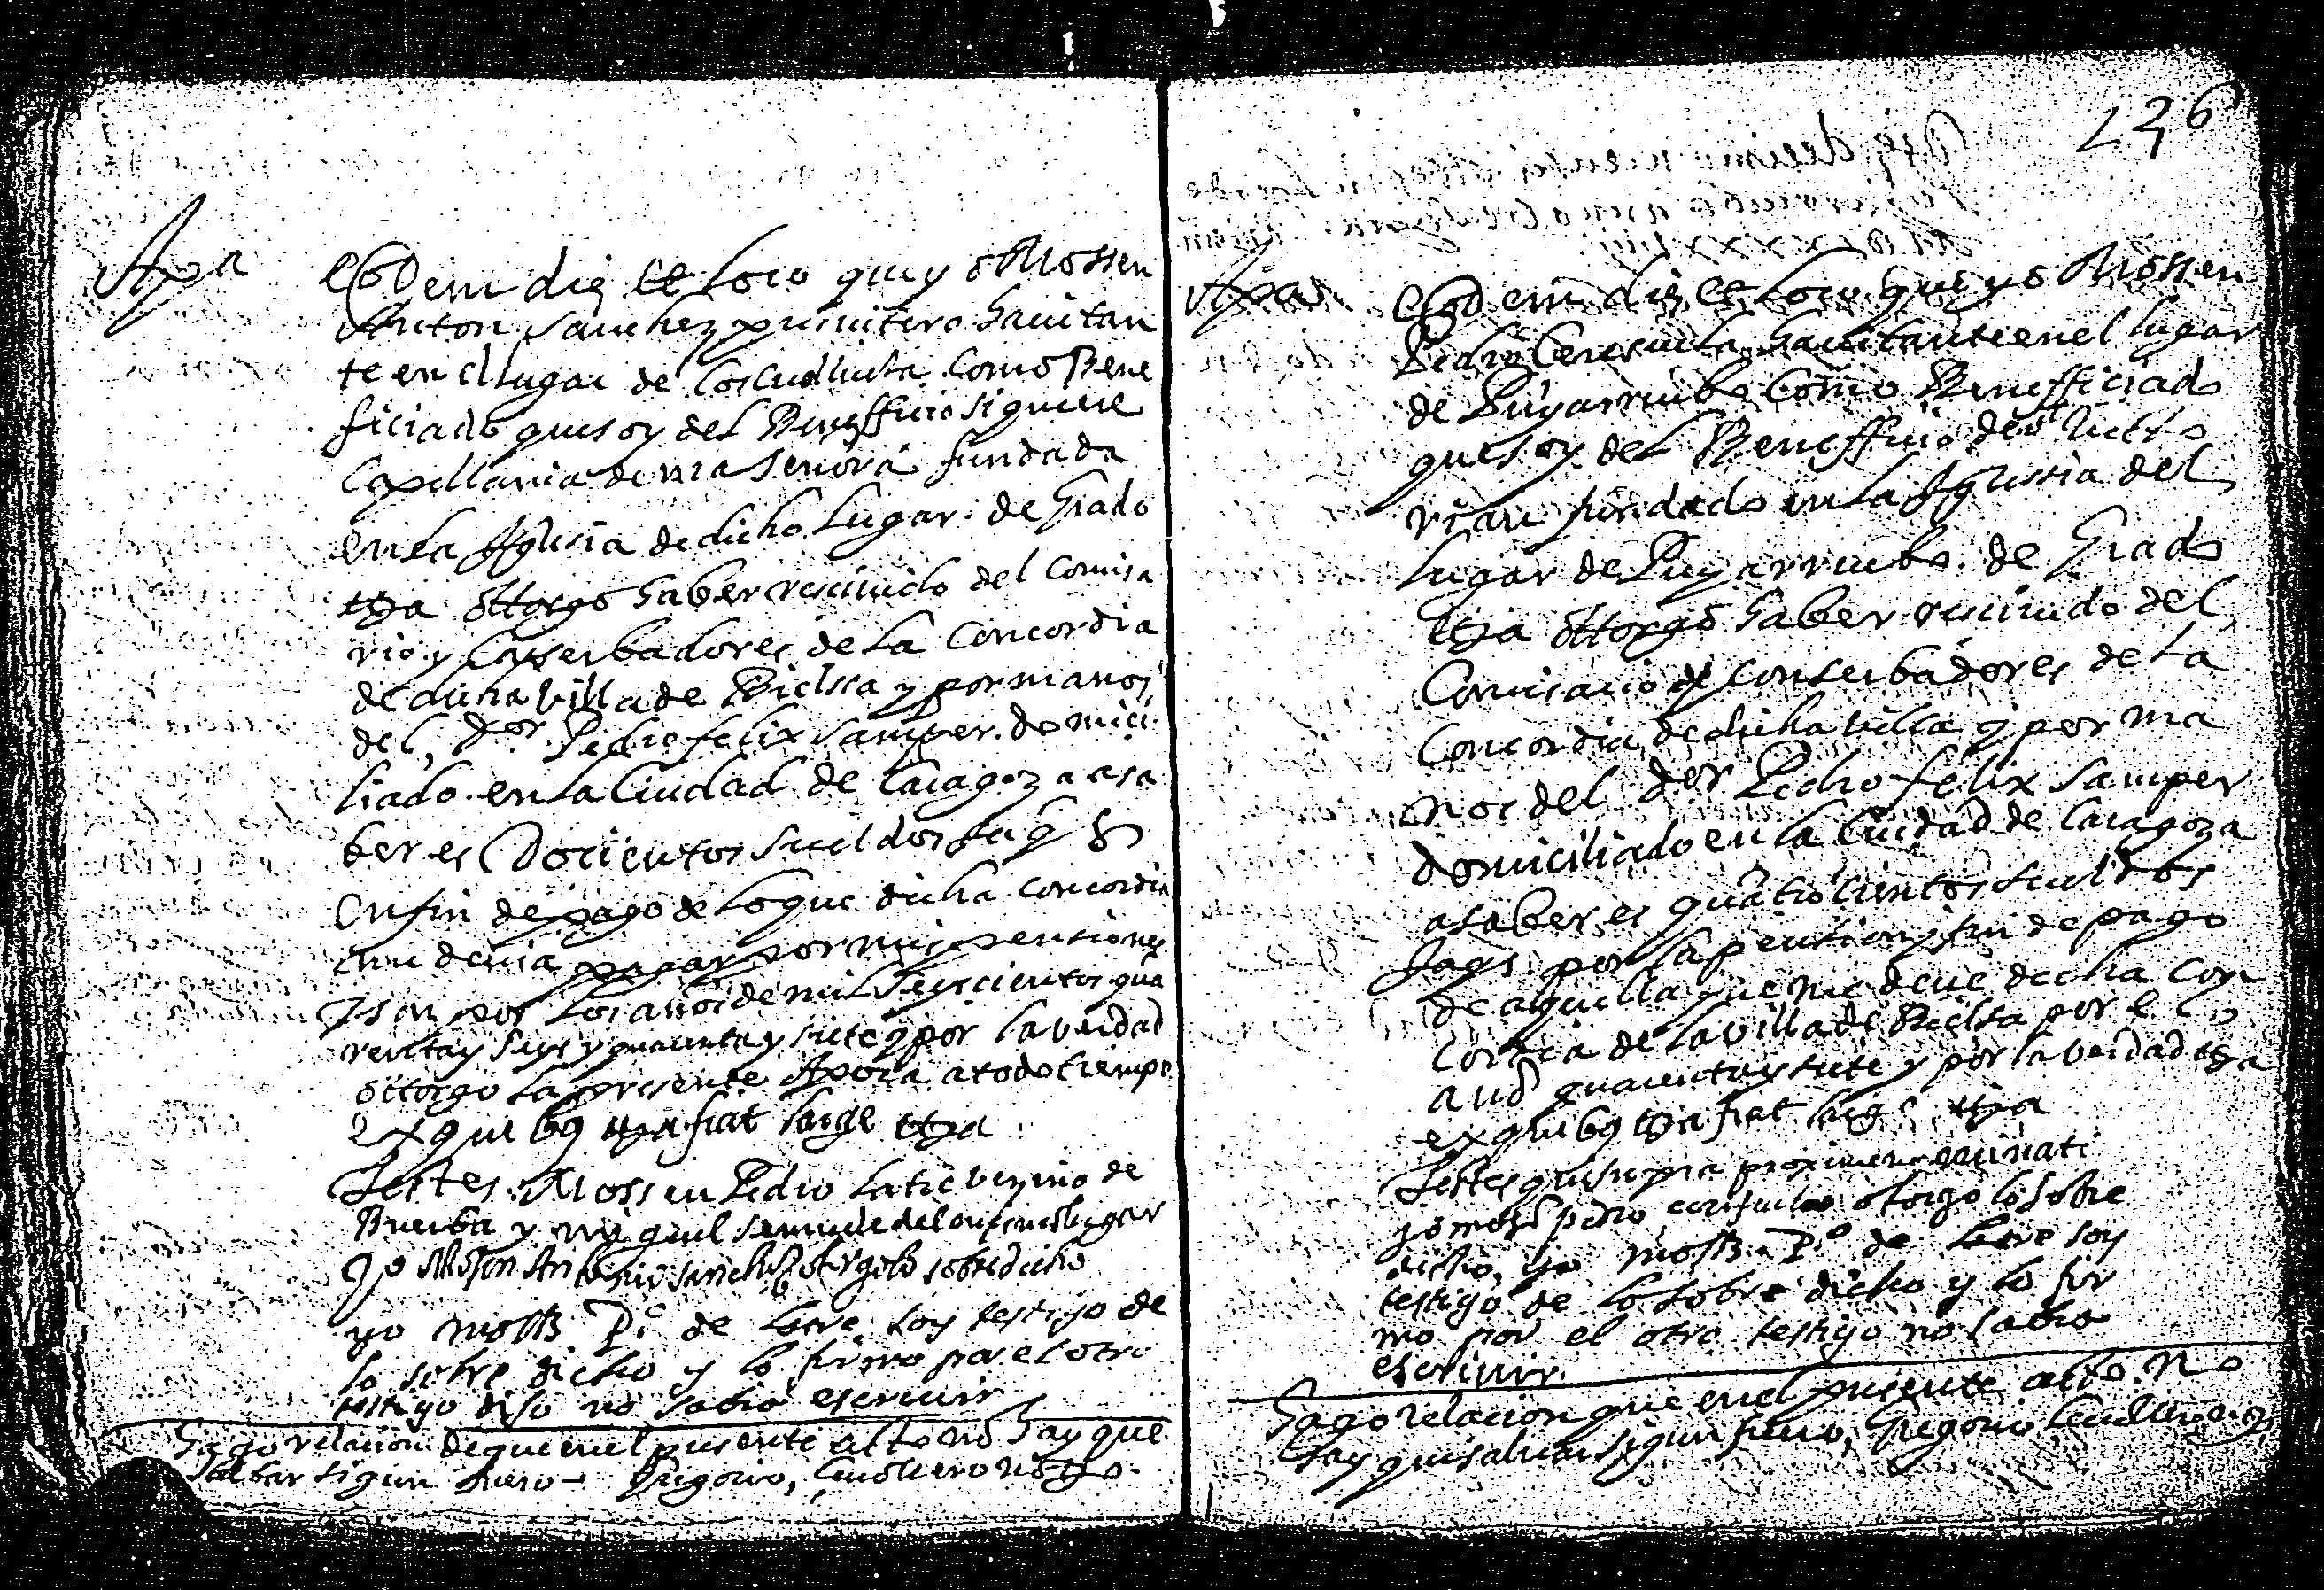 Apa
eodem die et loco que yo Mossen
Anton Sanchez primitero hauitan
te en el lugar de Coscudluela como Bene
ficiado que soy del Benefficio si quiere
Capellania de nra Senora fundada
en la Yglesia de dicho lugar. de Grado
etza ottorgo haber reciuido del Comisa
rio y Conserbadores de la Concordia
de dicha villa de Bielssa y por manos
del Dor Pedro felix Samper. domici
liado. en la Ciudad de Caragoza a sa
ber es Docientos sueldos jaqs
en fin de pago de lo que dicha concordia
me deuia pagar por mis pensiones
y son por los años de mil Seyscientos qua
renta y seys y quarenta y siete y por la verdad
ottorgo la presente Apoca a todo tiempo
ex quibus etza fiat large etza
Testes. Mossen Pedro Latre vezino de
Buerba y Miguel del mismo lugar
Yo Mosen Antonio Sanchez otorgo lo sobredicho
yo moss Po de latre soy testigo de
lo sobre dicho y lo firmo por el otro
testigo diso no sabia escriuir
Hago relacion de que en el presente acto no hay que
salbar sigun fuero – Gregorio, no
136
Apa
eodem die et loco que yo Mossen
Pedro Ceresuela hauitante en el lugar
de Puyarruebo Como Benefficiado
que soy del Benefficio de
fundado en la Yglessia del
lugar de Puyarruebo. de Grado
etza ottorgo haber reciuido del
Comisario y conserbadores de la
Concordia de dicha villa y por ma
nos del dor Pedro felix Samper
domiciliado en la Ciudad de Caragoza
a saber es quatrocientos sueldos
Jaqs por la pension y fin de pago
de aquella que me deue decha Con
cordia de la villa de Bielsa por el
año quarenta y siete y por la verdad etza
ex quibus etza fiat large etza
Testes qui supra proxime nominati
yo mossen pedro otorgo lo sobre
dicho, yo moss Po de latre soy
testigo de lo sobre dicho y lo fir
mo por el otro testigo no sabia
escriuir.
Hago relacion que en el presente acto no
hay que saluar sigun fuero, Gregorio